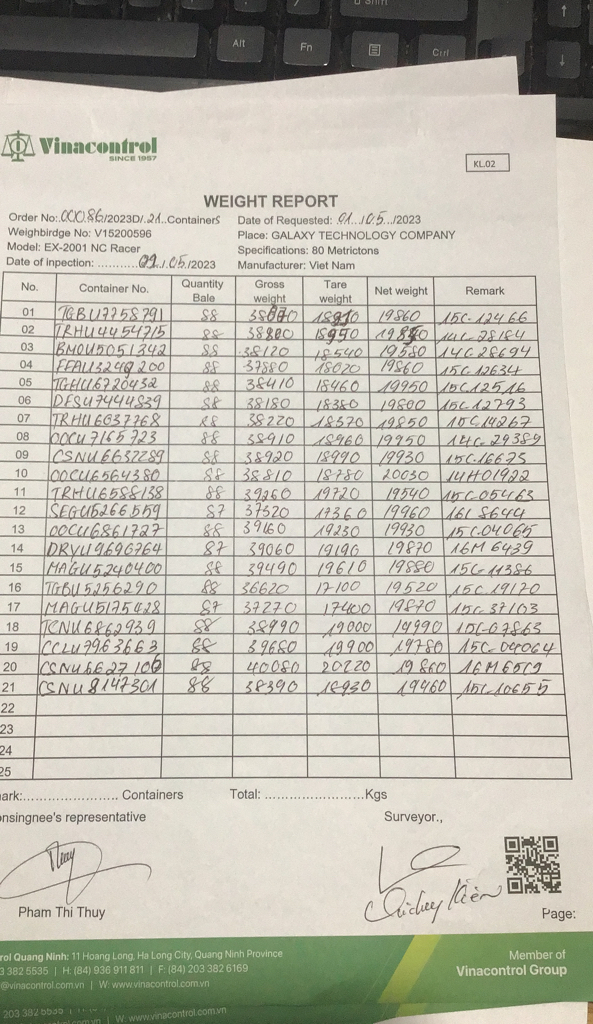 Alt
Fn
Ctrl
Shift
Vinacontrol
SINCE 1957
KL.02
WEIGHT REPORT
Order No:.00086/2023D/.21..Containers Date of Requested: 01../05../2023
Weighbirdge No: V15200596 Place: GALAXY TECHNOLOGY COMPANY
Model: EX-2001 NC Racer Specifications: 80 Metrictons
Date of inpection: ...........01./.05/2023 Manufacturer: Viet Nam
No. Container No. Quantity Bale Gross weight Tare weight Net weight Remark
01 TGBU7758791 88 19860 15C-12466
02 TRHU4454715 88 38800 18950 14C-28184
03 BMOU5051342 88 38120 18540 19580 14C28694
04 88 37880 18020 19860 15C-12634
05 TGHU6720432 88 38410 18460 19950 15C12516
06 DFSU7444839 88 38180 18380 19800 15C-12793
07 TRHU6037768 88 38220 18370 19850 15C14267
08 OOCU7165723 88 38910 18960 19950 14C-29389
09 CSNU6632289 88 38920 18990 19930 15C16673
10 OOCU6564380 88 38810 18780 20030 14H01922
11 TRHU6588138 88 39260 19720 19540 15C05463
12 SEGU5266559 87 37320 17360 19960 16L8644
13 OOCU6861727 88 39160 19230 19930 15C04065
14 DRYU9696764 87 39060 19190 19870 16M6439
15 MAGU5240400 88 39490 19610 19880 15C-11386
16 TGBU5256290 88 36620 17100 19520 15C.19170
17 MAGU5175428 87 37270 17400 19870 15C-37103
18 TCNU6862939 88 38990 19000 19990 15C-07863
19 CCLU7963663 88 39680 19900 19780 15C-04064
20 88 40080 20220 19860 16M6519
21 CSNU8147301 88 38390 18930 19460 15C-10655
22
23
24
25
ark:........................ Containers Total: .........................Kgs
onsingnee's representative Surveyor.,
Thuy
Pham Thi Thuy
Page:
rol Quang Ninh: 11 Hoang Long, Ha Long City, Quang Ninh Province
3 382 5535 | H: (84) 936 911 811 | F: (84) 203 382 6169
@vinacontrol.com.vn | W: www.vinacontrol.com.vn
Member of
Vinacontrol Group
203 382 5535
W: www.vinacontrol.com.vn